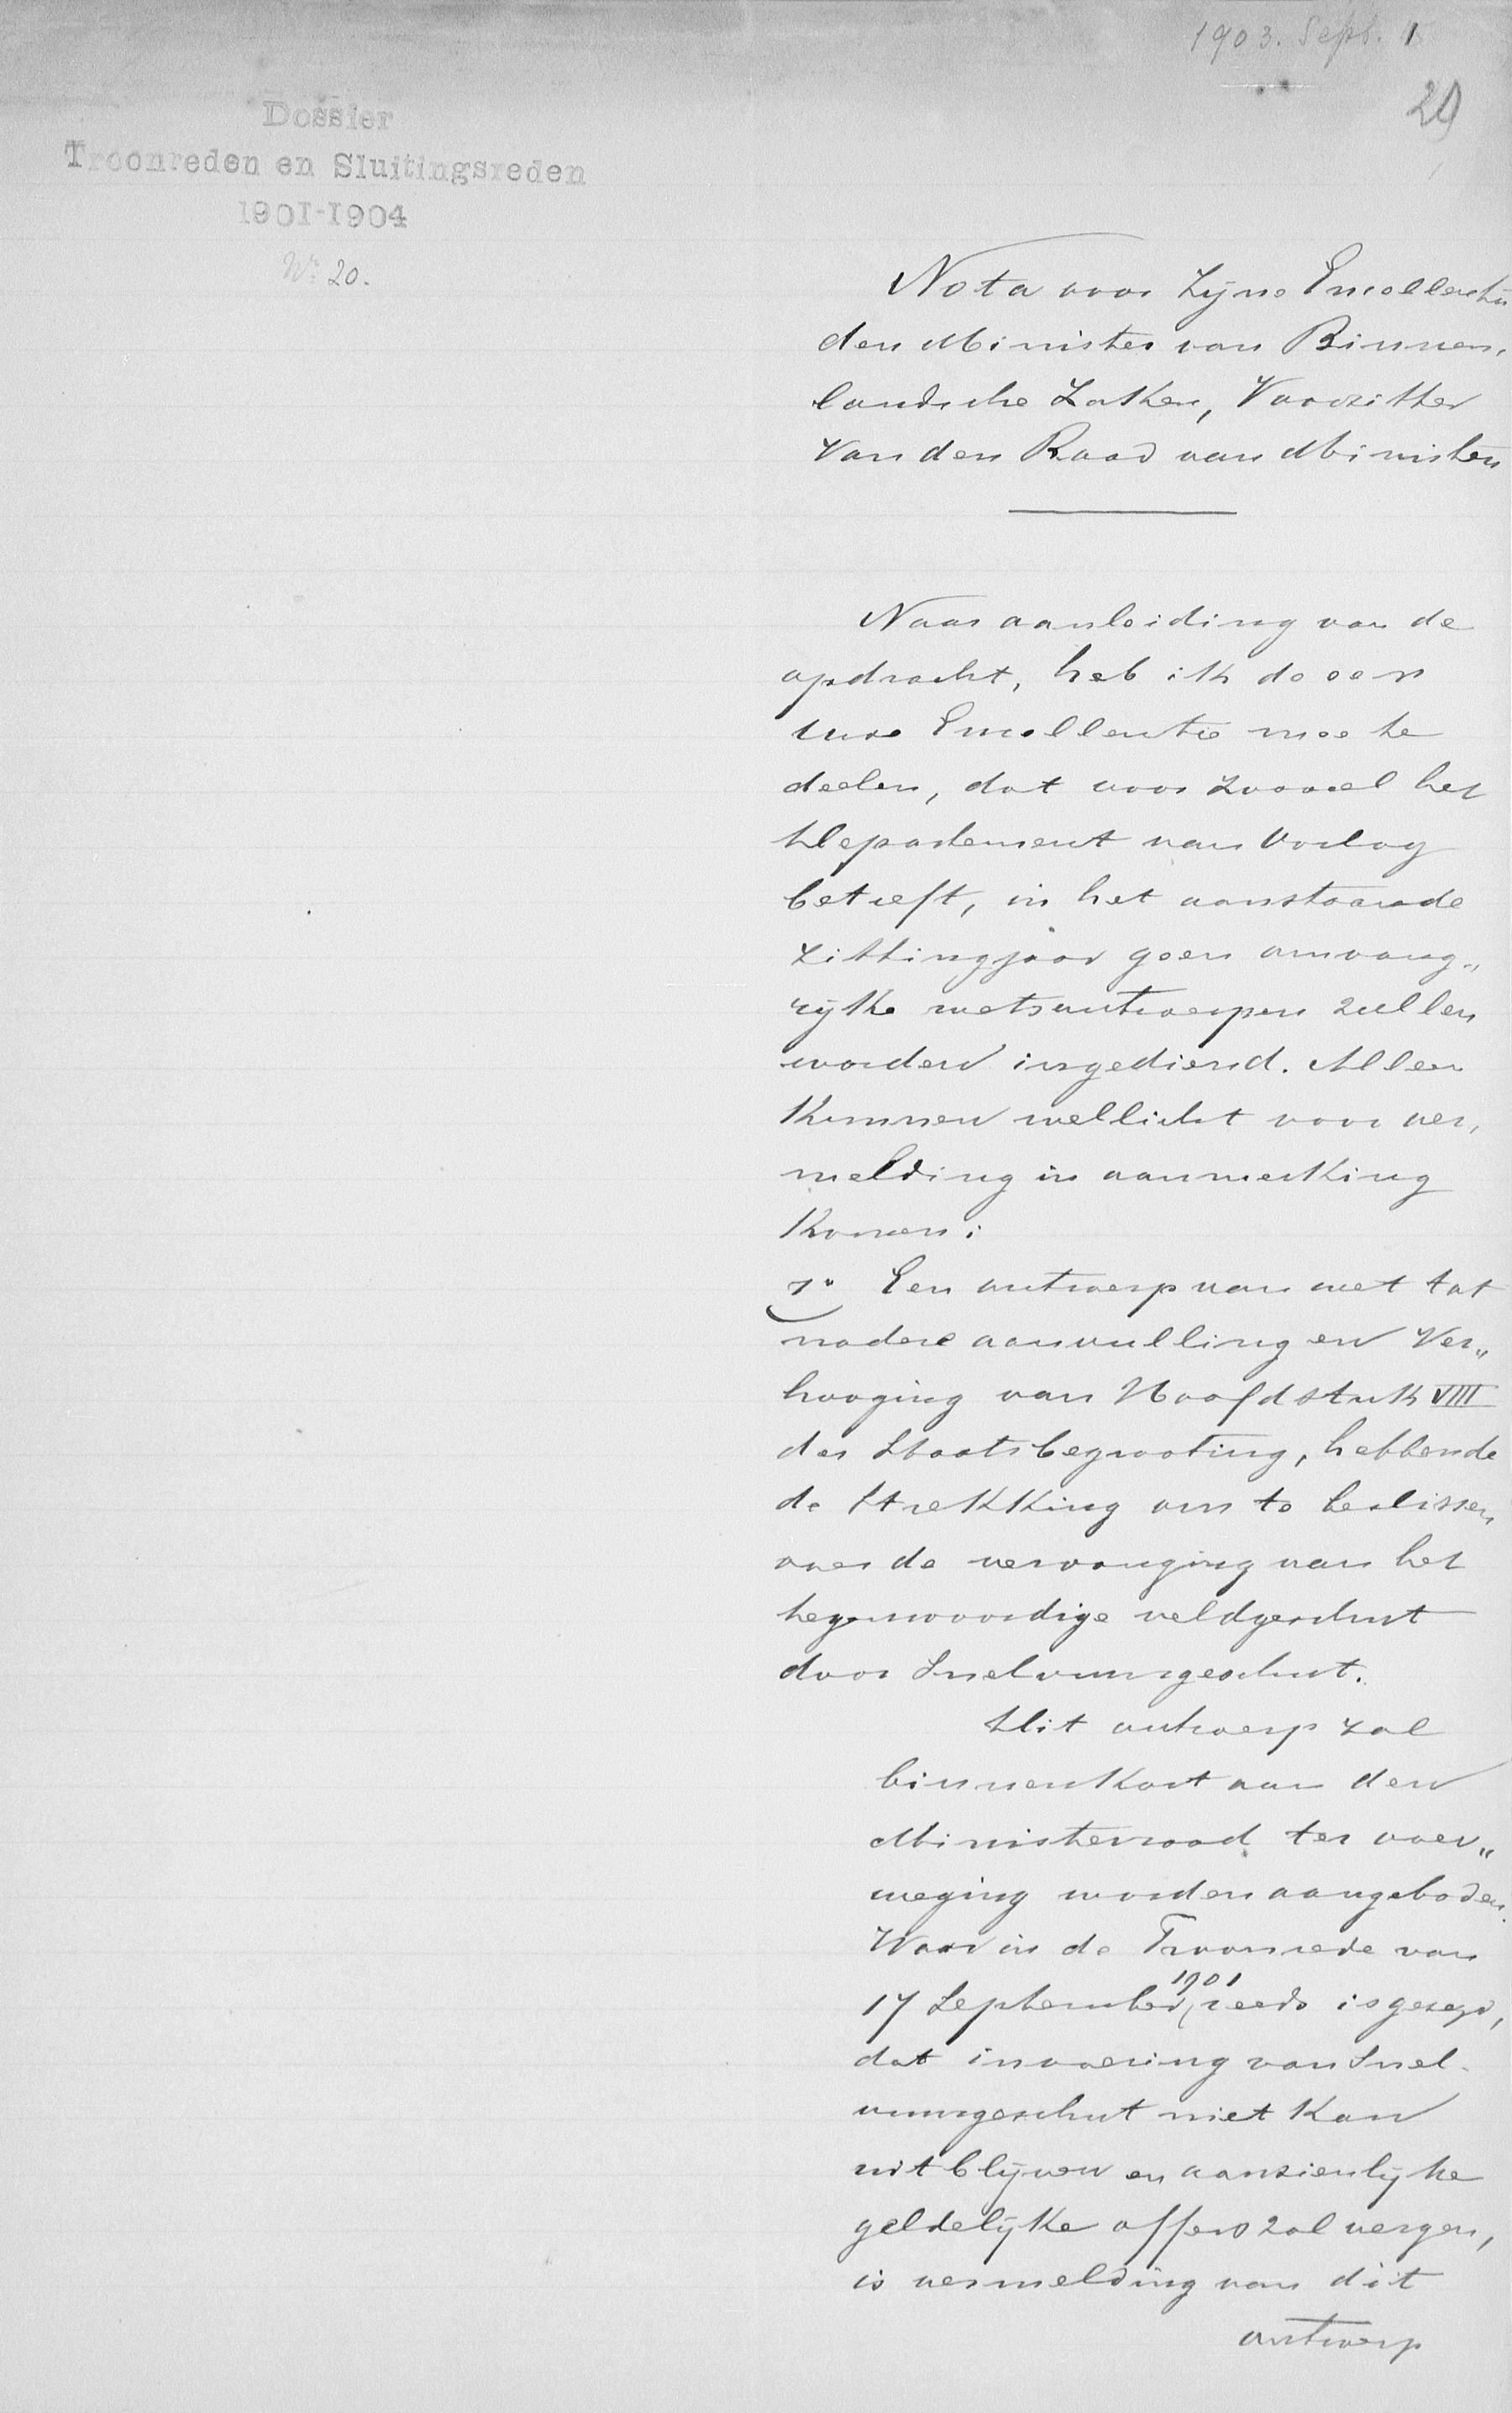 1903. Sept. 1
20
Dossier
Troonreden en Sluitingsreden
1901-1904
No. 20.
Nota voor Zijne Excellentie
den Minister van Binnen„
landsche Zaken, Voorzitter
van den Raad van Ministers
Naar aanleiding van de
opdracht, heb ik de eer
Uwe Excellentie mee te
deelen, dat voor zooveel het
Departement van Oorlog
betreft, in het aanstaande
zittingjaar geen omvang„
rijke wetsontwerpen zullen
worden ingediend. Alleen
kunnen wellicht voor ver„
melding in aanmerking
komen:
1o Een ontwerp van wet tot
nadere aanvulling en ver„
hooging van Hoofdstuk VIII
der Staatsbegrooting, hebbende
de strekking om te beslissen
over de vervanging van het
tegenwoordige veldgeschut
door snelvuurgeschut.
Dit ontwerp zal
binnenkort aan den
Ministerraad ter over„
weging worden aangeboden.
Waar in de Troonrede van
17 September 1901 reeds is gezegd,
dat invoering van snel-
vuurgeschut niet kan
uitblijven en aanzienlijke
geldelijke offers zal vergen,
is vermelding van dit
ontwerp